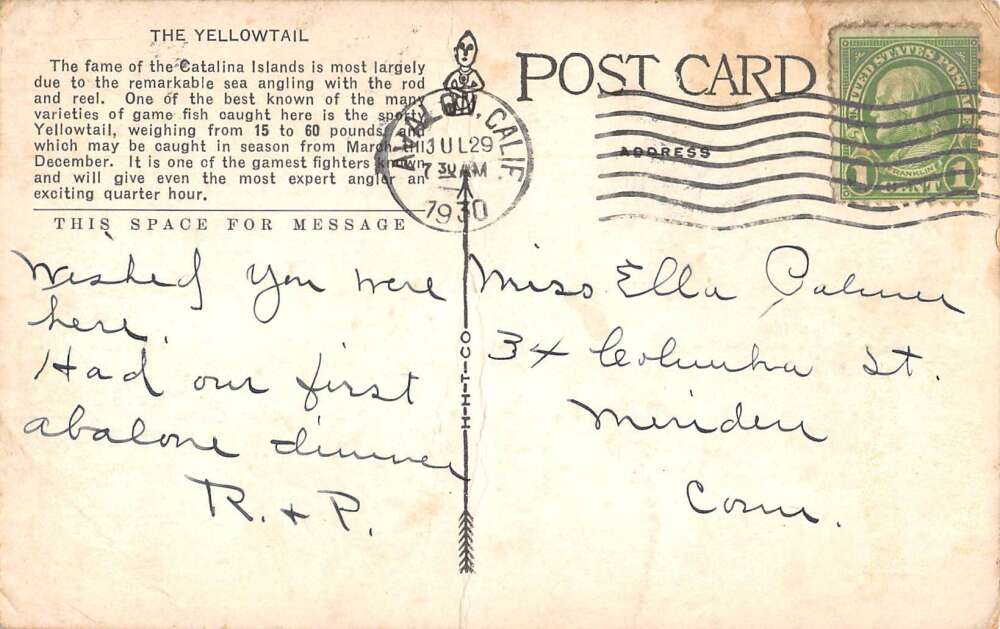 THE YELLOWTAIL
The fame of the Catalina Islands is most largely
due to the remarkable sea angling with the rod
and reel. One of the best known of the many
varieties of game fish caught here is the sporty
Yellowtail, weighing from 15 to 60 pounds, and
which may be caught in season from March till
December. It is one of the gamest fighters known
and will give even the most expert angler an
exciting quarter hour.
THIS SPACE FOR MESSAGE
Wished you were
here.
Had our first
abalone dinner
R. + P.
H-H-T-CO
POST CARD
ADDRESS
CALIF.
JUL 29
7 30 AM
1930
UNITED STATES POSTAGE
FRANKLIN
1 1
Miss Ella Palmer
34 Columbia St.
Meriden
Conn.